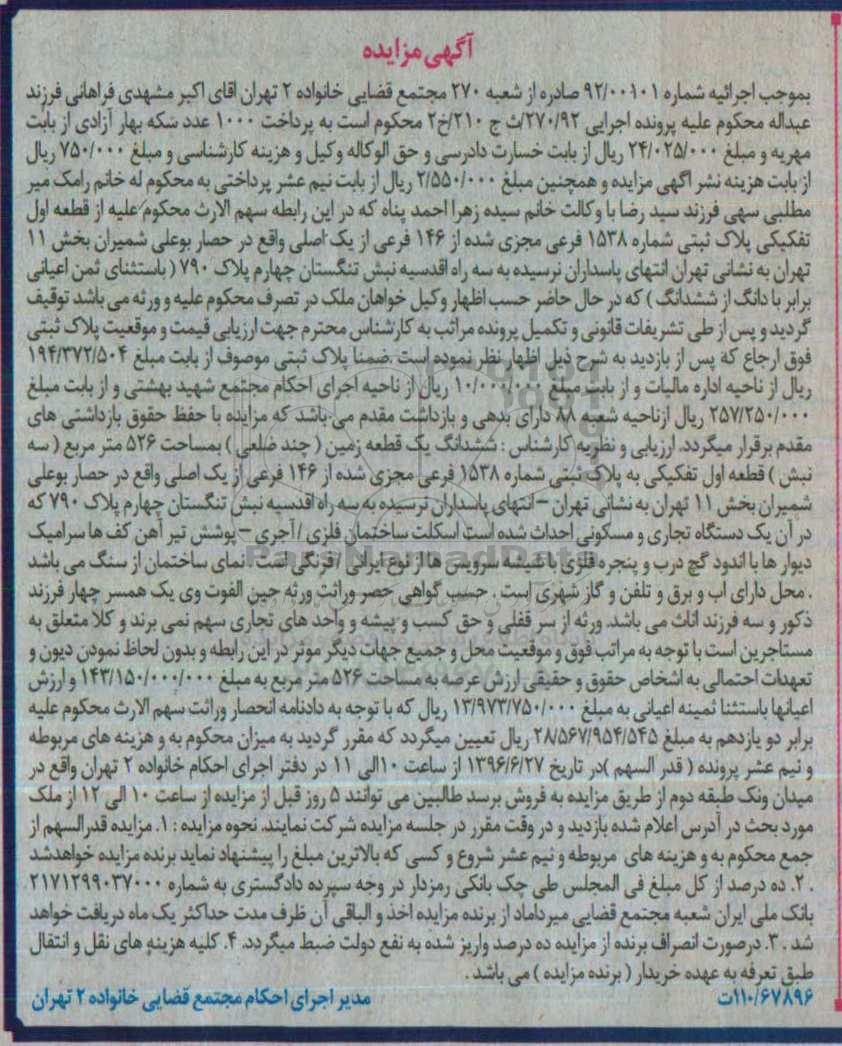 آگهی مزایده
بموجب اجرائیه شماره ۹۲/۰۰۱۰۱ صادره از شعبه ۲۷۰ مجتمع قضایی خانواده ۲ تهران اقای اکبر مشهدی فراهانی فرزند
عبداله محکوم علیه پرونده اجرایی ۲۷۰/۹۲/ث ج ۲۱۰/خ۲ محکوم است به پرداخت ۱۰۰۰ عدد سکه بهار آزادی از بابت
مهریه و مبلغ ۲۴/۰۲۵/۰۰۰ ریال از بابت خسارت دادرسی و حق الوکاله وکیل و هزینه کارشناسی و مبلغ ۷۵۰/۰۰۰ ریال
از بابت هزینه نشر اگهی مزایده و همچنین مبلغ ۲/۵۵۰/۰۰۰ ریال از بابت نیم عشر پرداختی به محکوم له خانم رامک میر
مطلبی سهی فرزند سید رضا با وکالت خانم سیده زهرا احمد پناه که در این رابطه سهم الارث محکوم علیه از قطعه اول
تفکیکی پلاک ثبتی شماره ۱۵۳۸ فرعی مجزی شده از ۱۴۶ فرعی از یک اصلی واقع در حصار بوعلی شمیران بخش ۱۱
تهران به نشانی تهران انتهای پاسداران نرسیده به سه راه اقدسیه نبش تنگستان چهارم پلاک ۷۹۰ ( باستثنای ثمن اعیانی
برابر با دانگ از ششدانگ ) که در حال حاضر حسب اظهار وکیل خواهان ملک در تصرف محکوم علیه و ورثه می باشد توقیف
گردید و پس از طی تشریفات قانونی و تکمیل پرونده مراتب به کارشناس محترم جهت ارزیابی قیمت و موقعیت پلاک ثبتی
فوق ارجاع که پس از بازدید به شرح ذیل اظهار نظر نموده است .ضمنا پلاک ثبتی موصوف از بابت مبلغ ۱۹۴/۳۷۲/۵۰۴
ریال از ناحیه اداره مالیات و از بابت مبلغ ۱۰/۰۰۰/۰۰۰ ریال از ناحیه اجرای احکام مجتمع شهید بهشتی و از بابت مبلغ
۲۵۷/۲۵۰/۰۰۰ ریال ازناحیه شعبه ۸۸ دارای بدهی و بازداشت مقدم می باشد که مزایده با حفظ حقوق بازداشتی های
مقدم برقرار میگردد. ارزیابی و نظریه کارشناس : ششدانگ یک قطعه زمین ( چند ضلعی ) بمساحت ۵۲۶ متر مربع ( سه
نبش ) قطعه اول تفکیکی به پلاک ثبتی شماره ۱۵۳۸ فرعی مجزی شده از ۱۴۶ فرعی از یک اصلی واقع در حصار بوعلی
شمیران بخش ۱۱ تهران به نشانی تهران – انتهای پاسداران نرسیده به سه راه اقدسیه نبش تنگستان چهارم پلاک ۷۹۰ که
در آن یک دستگاه تجاری و مسکونی احداث شده است اسکلت ساختمان فلزی / آجری – پوشش تیر آهن کف ها سرامیک
دیوار ها با اندود گچ درب و پنجره فلزی با شیشه سرویس ها از نوع ایرانی / فرنگی است . نمای ساختمان از سنگ می باشد
. محل دارای اب و برق و تلفن و گاز شهری است . حسب گواهی حصر وراثت ورثه حین الفوت وی یک همسر چهار فرزند
ذکور و سه فرزند اناث می باشد. ورثه از سر قفلی و حق کسب و پیشه و واحد های تجاری سهم نمی برند و کلا متعلق به
مستاجرین است با توجه به مراتب فوق و موقعیت محل و جمیع جهات دیگر موثر در این رابطه و بدون لحاظ نمودن دیون و
تعهدات احتمالی به اشخاص حقوق و حقیقی ارزش عرصه به مساحت ۵۲۶ متر مربع به مبلغ ۱۴۳/۱۵۰/۰۰۰/۰۰۰ و ارزش
اعیانها باستثنا ثمینه اعیانی به مبلغ ۱۳/۹۷۳/۷۵۰/۰۰۰ ریال که با توجه به دادنامه انحصار وراثت سهم الارث محکوم علیه
برابر دو یازدهم به مبلغ ۲۸/۵۶۷/۹۵۴/۵۴۵ ریال تعیین میگردد که مقرر گردید به میزان محکوم به و هزینه های مربوطه
و نیم عشر پرونده ( قدر السهم )در تاریخ ۱۳۹۶/۶/۲۷ از ساعت ۱۰الی ۱۱ در دفتر اجرای احکام خانواده ۲ تهران واقع در
میدان ونک طبقه دوم از طریق مزایده به فروش برسد طالبین می توانند ۵ روز قبل از مزایده از ساعت ۱۰ الی ۱۲ از ملک
مورد بحث در آدرس اعلام شده بازدید و در وقت مقرر در جلسه مزایده شرکت نمایند. نحوه مزایده : ۱. مزایده قدرالسهم از
جمع محکوم به و هزینه های مربوطه و نیم عشر شروع و کسی که بالاترین مبلغ را پیشنهاد نماید برنده مزایده خواهدشد
. ۲. ده درصد از کل مبلغ فی المجلس طی چک بانکی رمزدار در وجه سپرده دادگستری به شماره ۲۱۷۱۲۹۹۰۳۷۰۰۰
بانک ملی ایران شعبه مجتمع قضایی میرداماد از برنده مزایده اخذ و الباقی آن ظرف مدت حداکثر یک ماه دریافت خواهد
شد . ۳. درصورت انصراف برنده از مزایده ده درصد واریز شده به نفع دولت ضبط میگردد. ۴. کلیه هزینه های نقل و انتقال
طبق تعرفه به عهده خریدار ( برنده مزایده ) می باشد .
۱۱۰/۶۷۸۹۶ت مدیر اجرای احکام مجتمع قضایی خانواده ۲ تهران
ParsNamadData